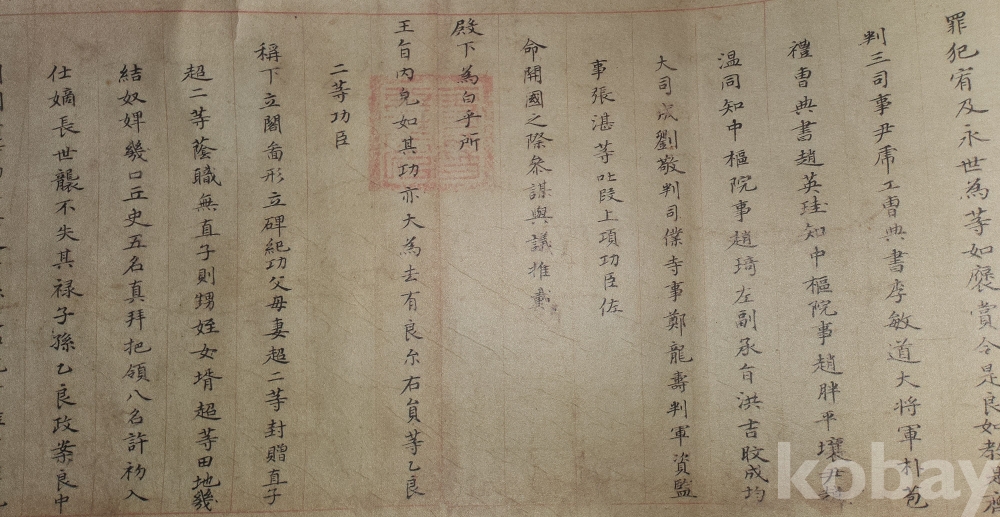 罪犯宥及永世為等如褒賞令是良如教是齊
判三司事尹虎工曹典書李敏道大将軍朴苞
禮曹典書趙英珪知中樞院事趙胖平壤尹
温同知中樞院事趙琦左副承旨洪吉旼成均
大司成劉敬判司僕寺事鄭龍壽判軍資監
事張湛等叱段上項功臣佐
命開國之際叅謀與議推戴
殿下為白乎所
王旨內皃如其功亦大為去有良尒右員等乙良
二等功臣
稱下立閣畫形立碑紀功父母妻超二等封贈直子
超二等蔭職無直子則甥姪女壻超等田地幾
結奴婢幾口丘史五名真拜把領八名許初入
仕嫡長世襲不失其禄子孫乙良政案良中
kobay